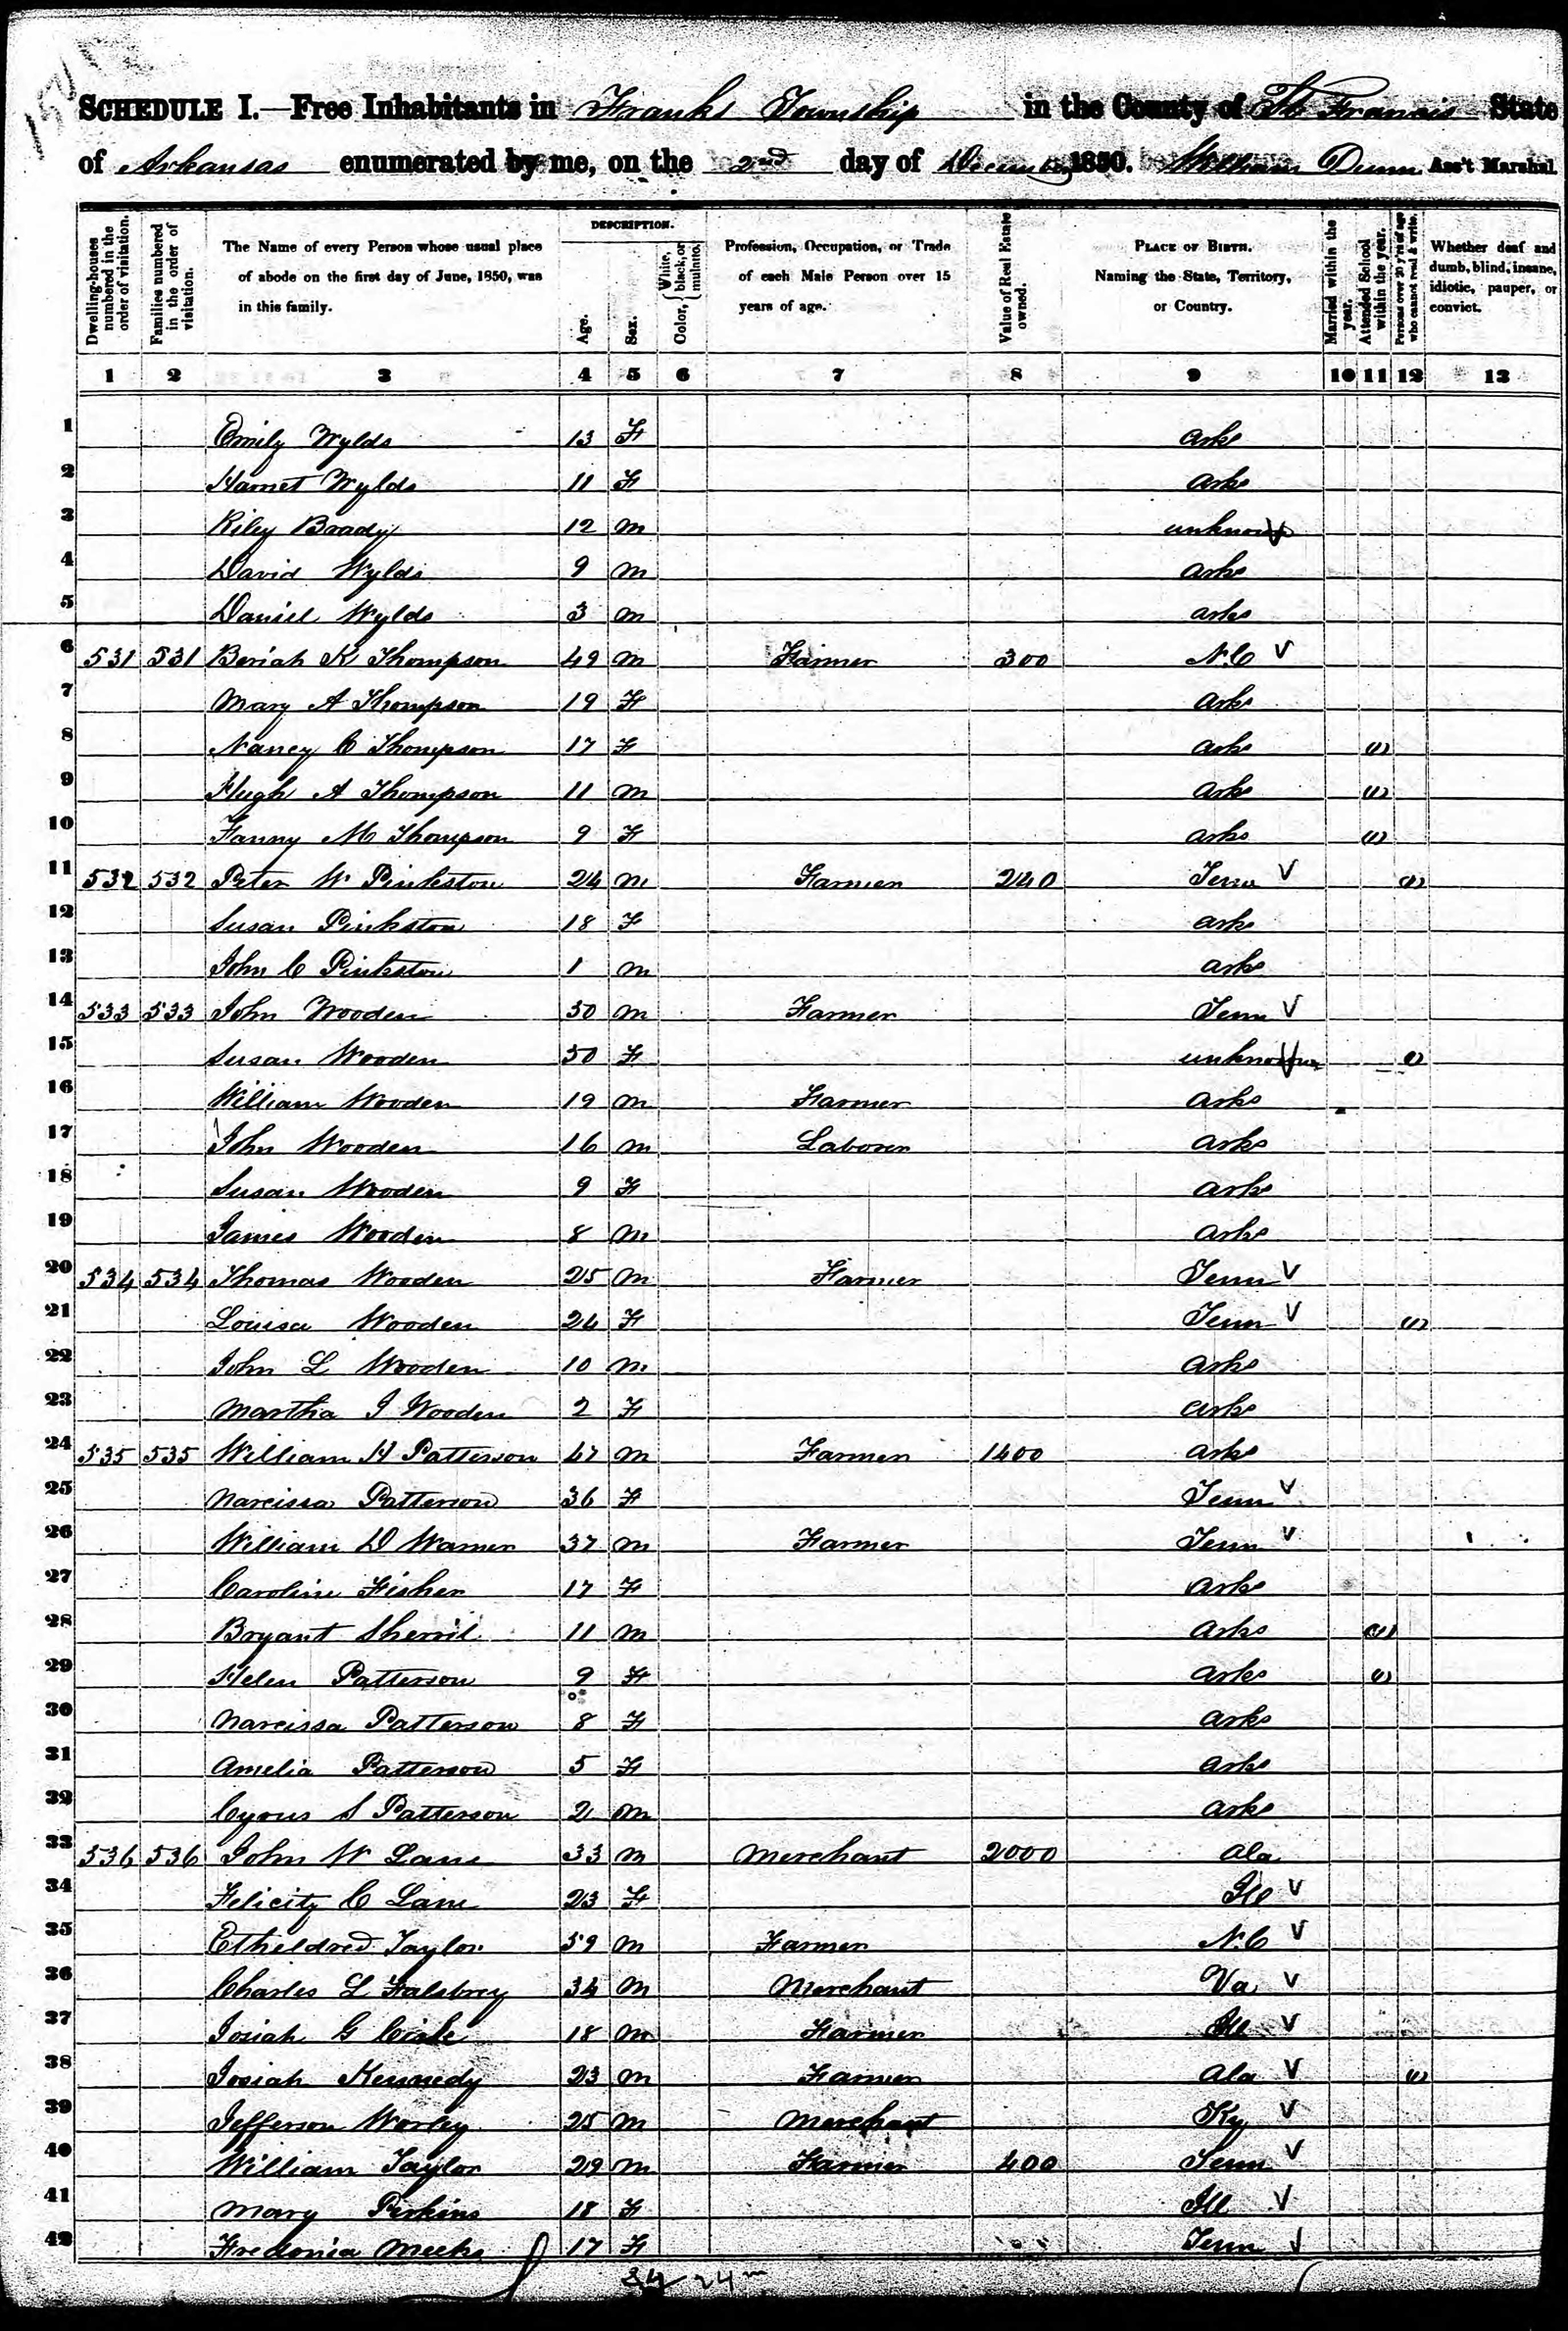 SCHEDULE I.—Free Inhabitants in Franks Township in the County of St Francis State
of Arkansas enumerated by me, on the 2nd day of December 1850. William Dunn Ass't Marshal
Dwelling-houses numbered in the order of visitation.
Families numbered in the order of visitation.
The Name of every Person whose usual place of abode on the first day of June, 1850, was in this family.
DESCRIPTION.
Age.
Sex.
Color, { White, black, or mulatto.
Profession, Occupation, or Trade of each Male Person over 15 years of age.
Value of Real Estate owned.
PLACE OF BIRTH. Naming the State, Territory, or Country.
Married within the year.
Attended School within the year.
Persons over 20 y'rs of age who cannot read & write.
Whether deaf and dumb, blind, insane, idiotic, pauper, or convict.
1 2 3 4 5 6 7 8 9 10 11 12 13
1 Emily Wylds 13 F Arks
2 Harriet Wylds 11 F Arks
3 Riley Brady 12 m unknown V
4 David Wylds 9 m Arks
5 Daniel Wylds 3 m Arks
6 531 531 Beriah K Thompson 49 m Farmer 300 N.C V
7 Mary A Thompson 19 F Arks
8 Nancy C Thompson 17 F Arks (1)
9 Hugh A Thompson 11 m Arks (1)
10 Fanny M Thompson 9 F Arks (1)
11 532 532 Peter W Pinkston 24 m Farmer 240 Tenn V (1)
12 Susan Pinkston 18 F Arks
13 John C Pinkston 1 m Arks
14 533 533 John Wooden 50 m Farmer Tenn V
15 Susan Wooden 50 F unknown V (1)
16 William Wooden 19 m Farmer Arks
17 John Wooden 16 m Laborer Arks
18 Susan Wooden 9 F Arks
19 James Wooden 8 m Arks
20 534 534 Thomas Wooden 25 m Farmer Tenn V
21 Louisa Wooden 24 F Tenn V (1)
22 John L Wooden 10 m Arks
23 Martha J Wooden 2 F Arks
24 535 535 William H Patterson 47 m Farmer 1400 Arks
25 Narcissa Patterson 36 F Tenn V
26 William D Warner 37 m Farmer Tenn V
27 Caroline Fisher 17 F Arks
28 Bryant Sherril 11 m Arks (1)
29 Helen Patterson 9 F Arks (1)
30 Narcissa Patterson 8 F Arks
31 Amelia Patterson 5 F Arks
32 Cyrus S Patterson 2 m Arks
33 536 536 John W Lane 33 m Merchant 2000 Ala
34 Felicity C Lane 23 F Ill V
35 Etheldred Taylor 59 m Farmer N.C V
36 Charles L 34 m Merchant Va V
37 Josiah G 18 m Farmer Ill V
38 Josiah Kennedy 23 m Farmer Ala V (1)
39 Jefferson Worley 25 m Merchant Ky V
40 William Taylor 29 m Farmer 400 Tenn V
41 Mary Perkins 18 F Ill V
42 Fredonia Meeks 17 F Tenn V
24 m